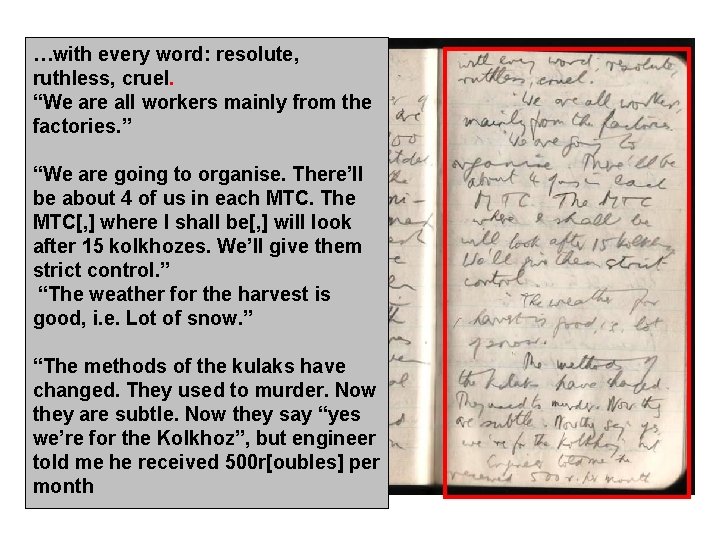 …with every word: resolute,
ruthless, cruel.
“We are all workers mainly from the
factories. ”
“We are going to organise. There’ll
be about 4 of us in each MTC. The
MTC[, ] where I shall be[, ] will look
after 15 kolkhozes. We’ll give them
strict control. ”
“The weather for the harvest is
good, i.e. Lot of snow. ”
“The methods of the kulaks have
changed. They used to murder. Now
they are subtle. Now they say “yes
we’re for the Kolkhoz”, but engineer
told me he received 500r[oubles] per
month
with every word; resolute,
ruthless, cruel.
"We are all workers,
mainly from the factories.
"We are going to
organise. There'll be
about 4 of us in each
MTC. The MTC
where I shall be
will look after 15 kolkhoz
We'll give them strict
control.
"The weather for
harvest is good, i.e. lot
of snow.
"The methods of
the kulaks have changed.
They used to murder. Now they
are subtle. Now they say "yes
we're for the kolkhoz, but
Engineer told me he
received 500 r. per month